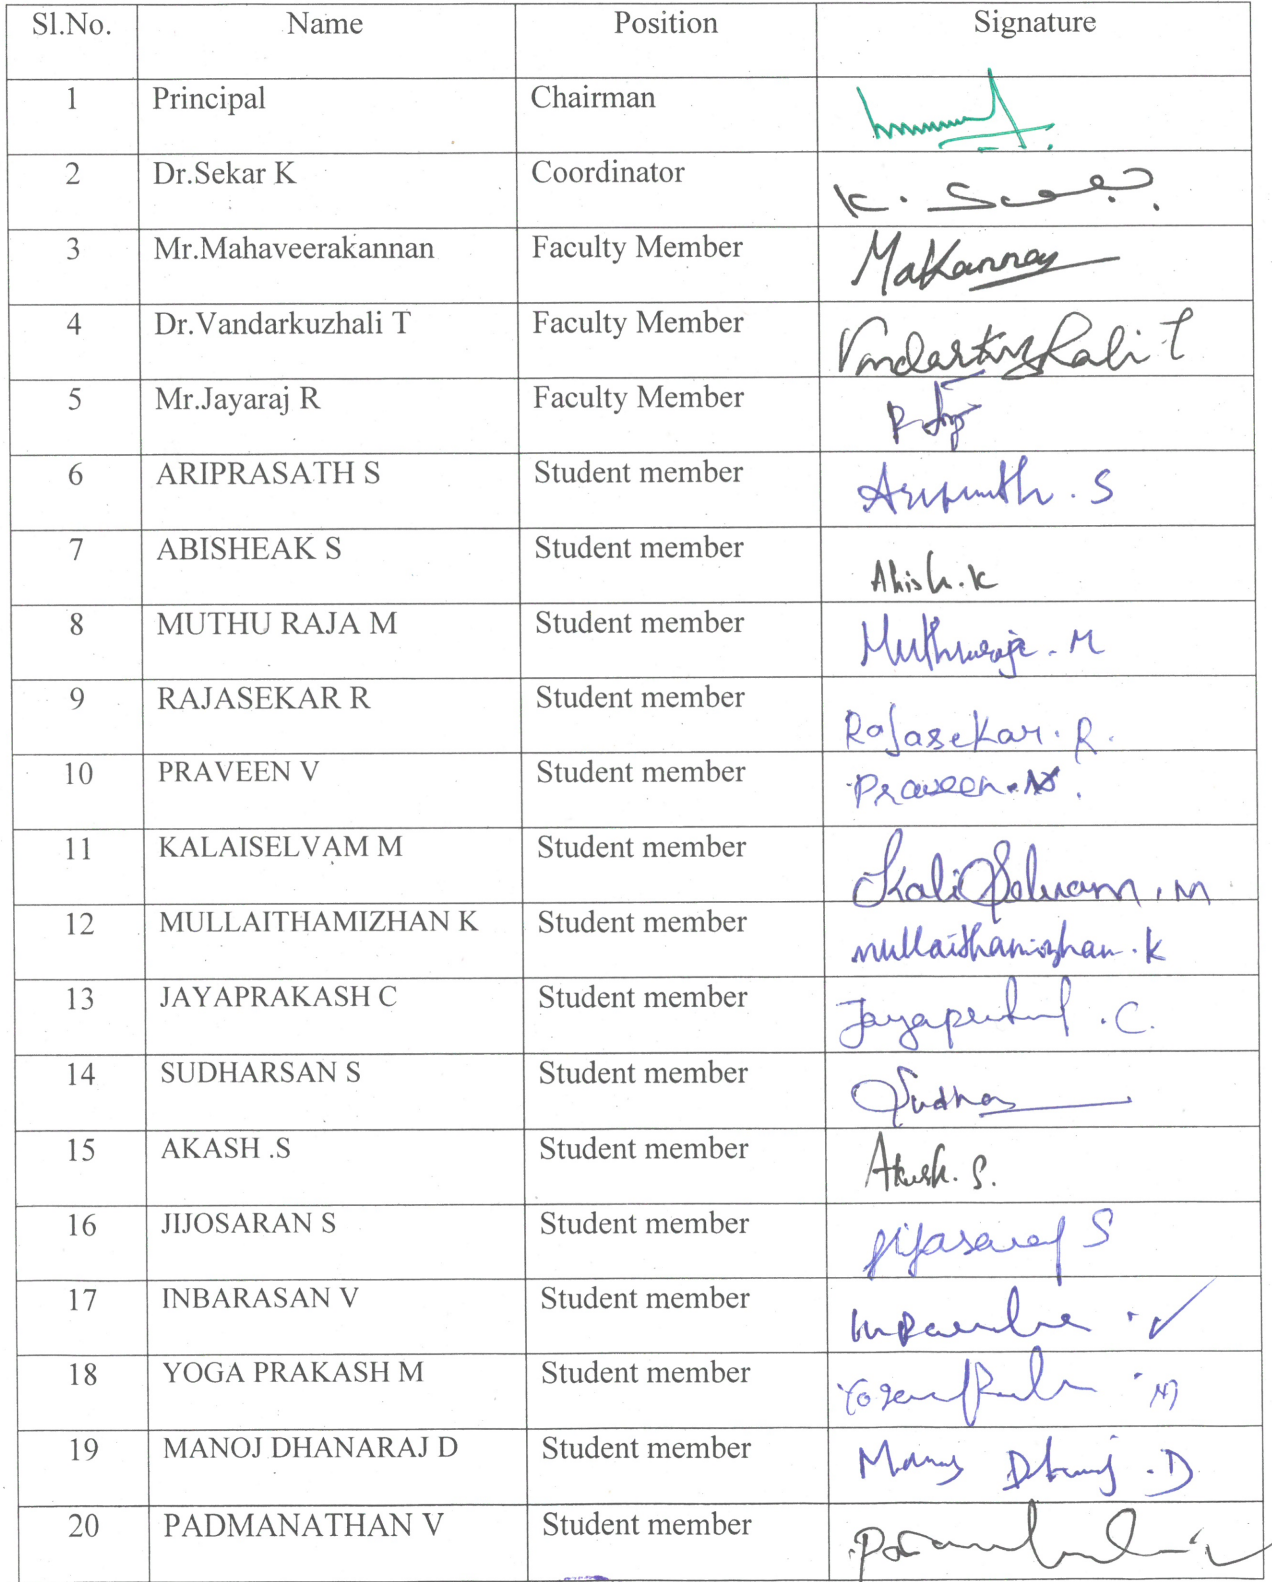 Sl.No. Name Position Signature
1 Principal Chairman
2 Dr.Sekar K Coordinator K.
3 Mr.Mahaveerakannan Faculty Member Makannan
4 Dr.Vandarkuzhali T Faculty Member Vandarkuzhali T
5 Mr.Jayaraj R Faculty Member
6 ARIPRASATH S Student member . S
7 ABISHEAK S Student member Abish.k
8 MUTHU RAJA M Student member Muthuraja . M
9 RAJASEKAR R Student member Rajasekar. R.
10 PRAVEEN V Student member Praveen.
11 KALAISELVAM M Student member KaliSelvam . M
12 MULLAITHAMIZHAN K Student member mullaithamizhan . k
13 JAYAPRAKASH C Student member . C.
14 SUDHARSAN S Student member
15 AKASH .S Student member Akash. S.
16 JIJOSARAN S Student member S
17 INBARASAN V Student member . V
18 YOGA PRAKASH M Student member . M
19 MANOJ DHANARAJ D Student member . D
20 PADMANATHAN V Student member